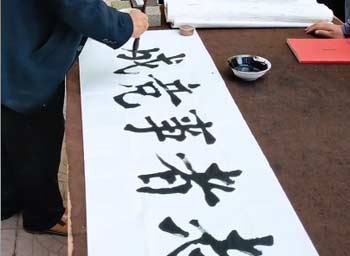 志者事竟成